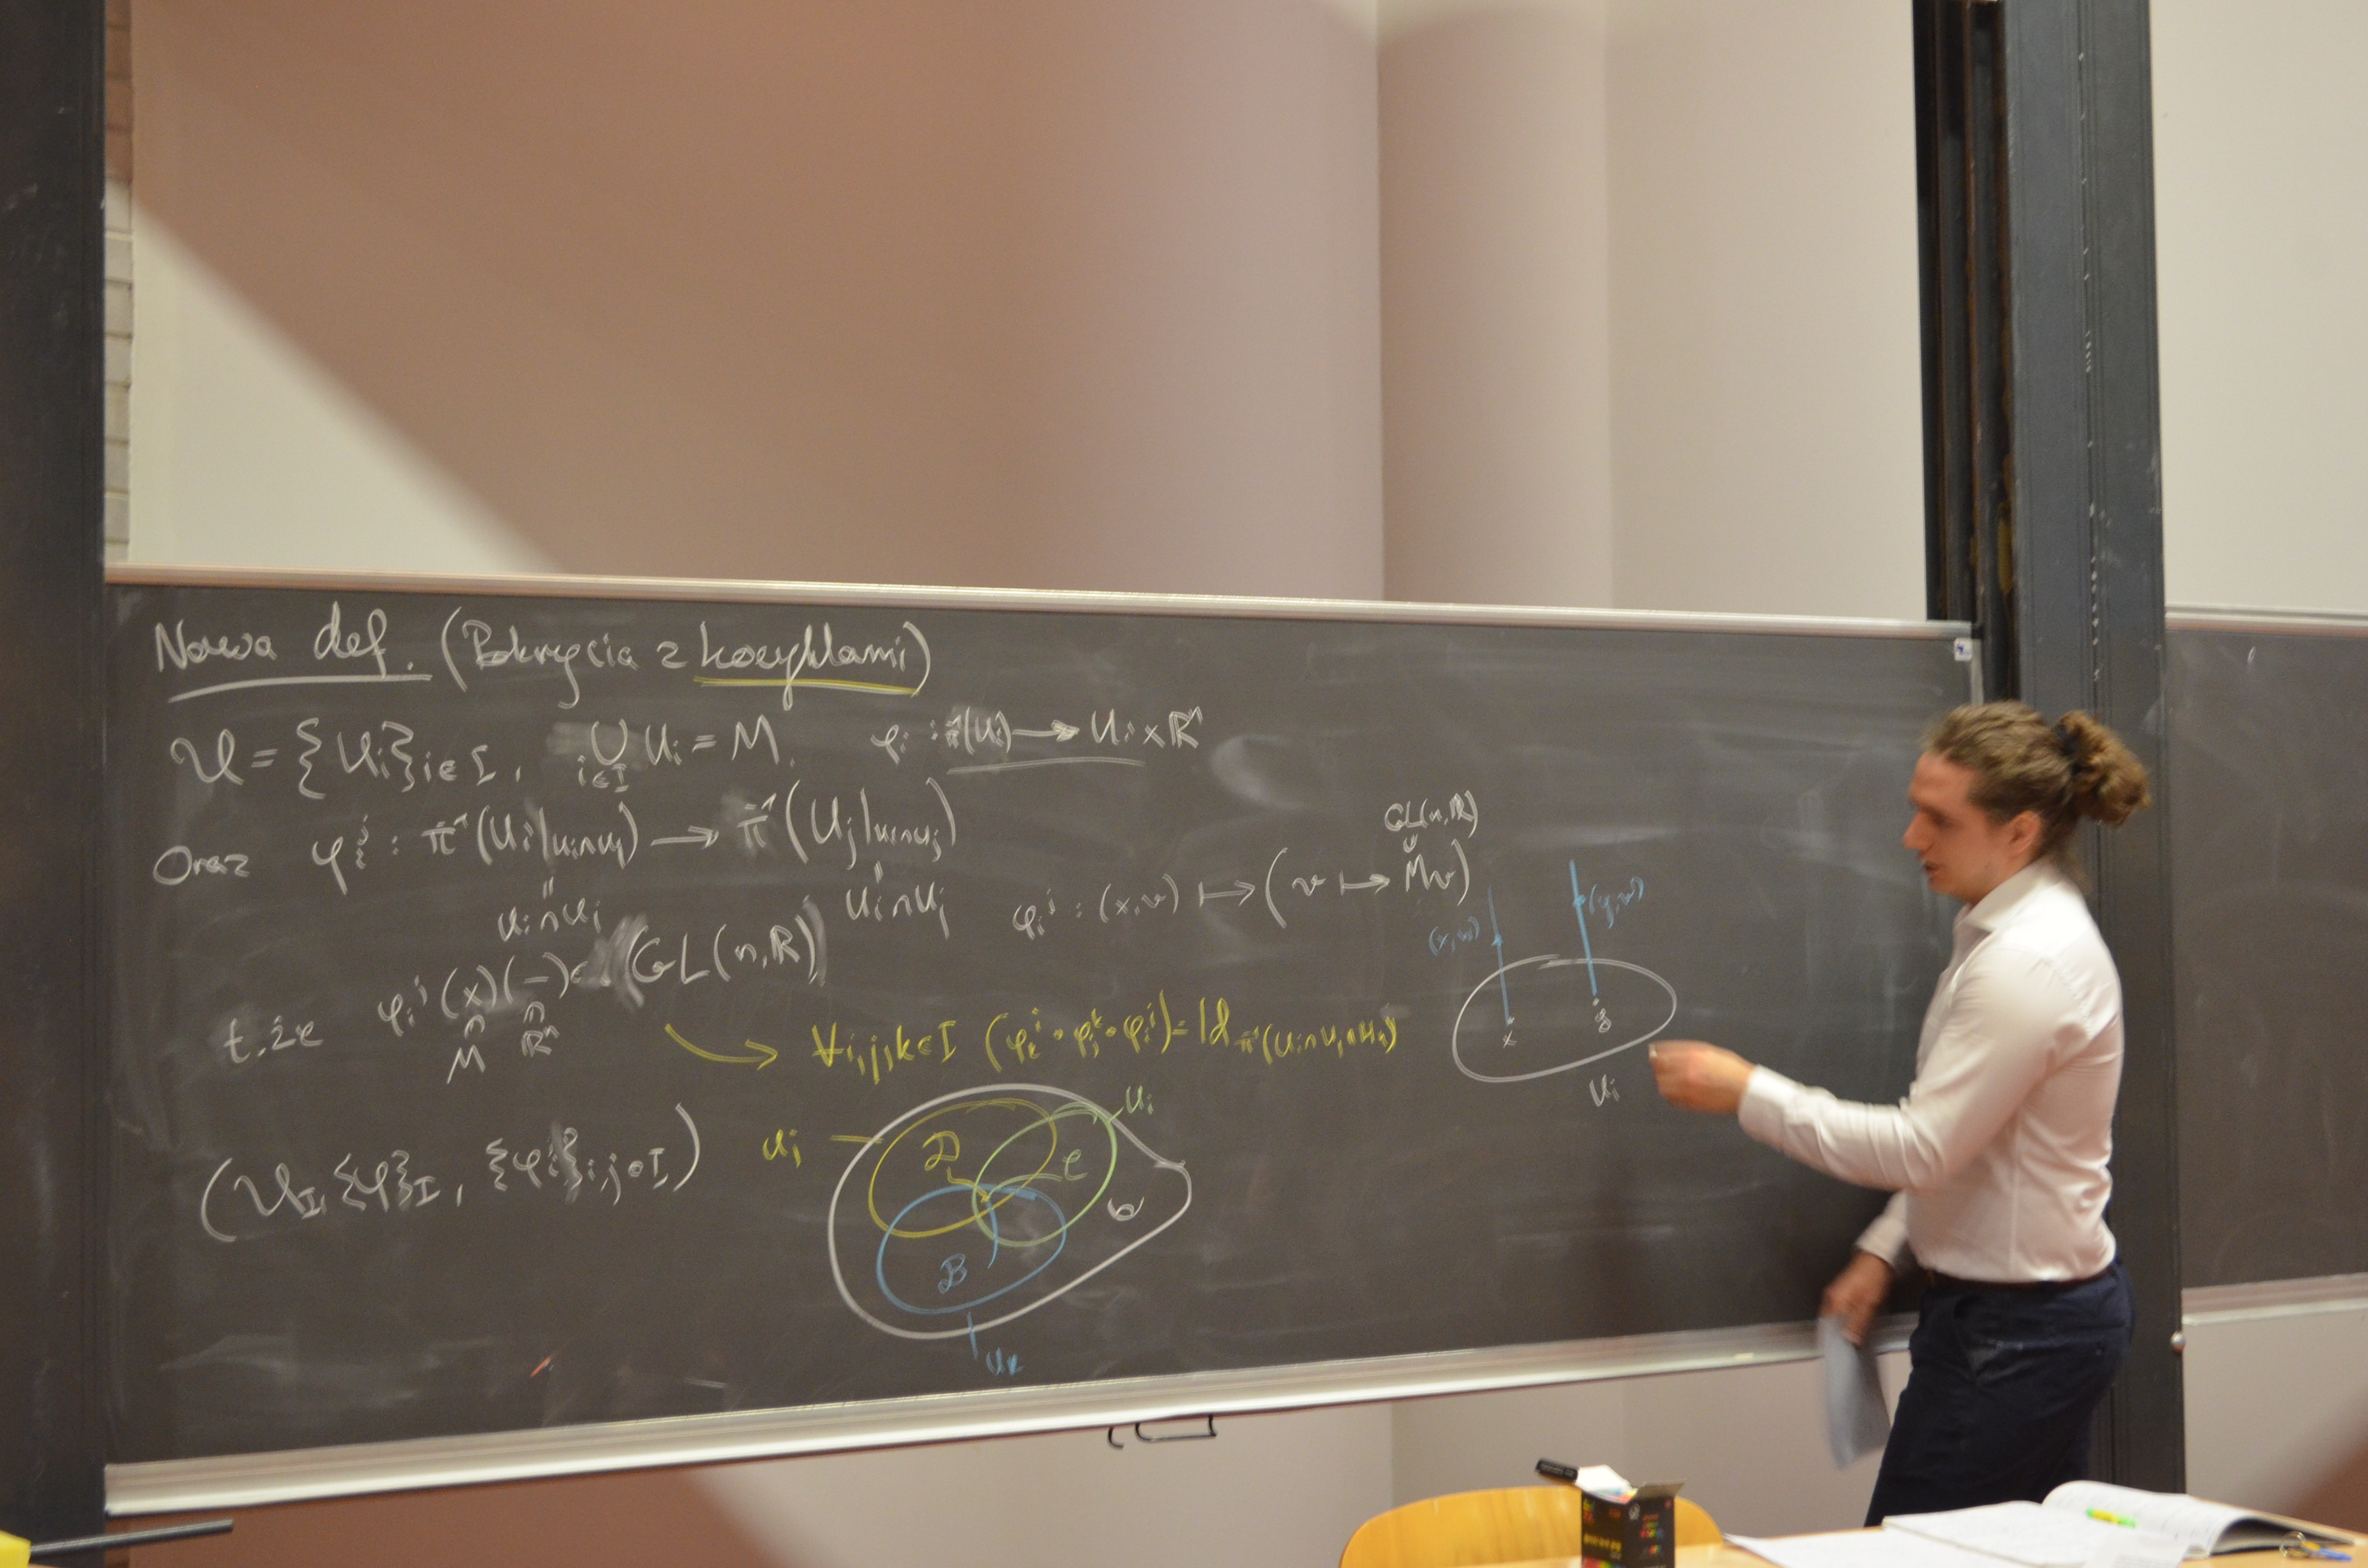 Nowa def. (Pokrycia z kocyklami)
𝒰 = {Uᵢ}ᵢ∈I, ⋃ᵢ∈I Uᵢ = M. φᵢ : π⁻¹(Uᵢ) → Uᵢ × ℝⁿ
Oraz φᵢʲ : π⁻¹(Uᵢ|Uᵢ∩Uⱼ) → π⁻¹(Uⱼ|Uᵢ∩Uⱼ)
Uᵢ∩Uⱼ Uᵢ∩Uⱼ
t.że φᵢʲ(x)(−) ∈ (GL(n,ℝ))
M ℝⁿ
∀i,j,k∈I (φₖⁱ∘φⱼᵏ∘φᵢʲ) = Id π⁻¹(Uᵢ∩Uⱼ∩Uₖ)
(𝒰_I, {φ}_I, {φᵢʲ}i,j∈I)
Uⱼ
Uᵢ
D
C
B
Uₖ
GL(n,ℝ)
φᵢʲ : (x,v) ↦ (v ↦ Mv)
(x,w)
(y,v)
x
y
Uᵢ